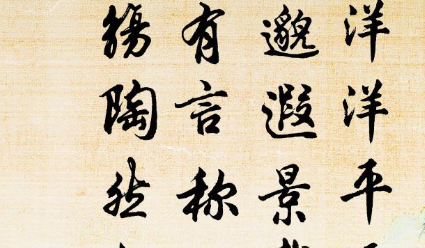 洋洋平
邈遐景
有言称
觞陶然